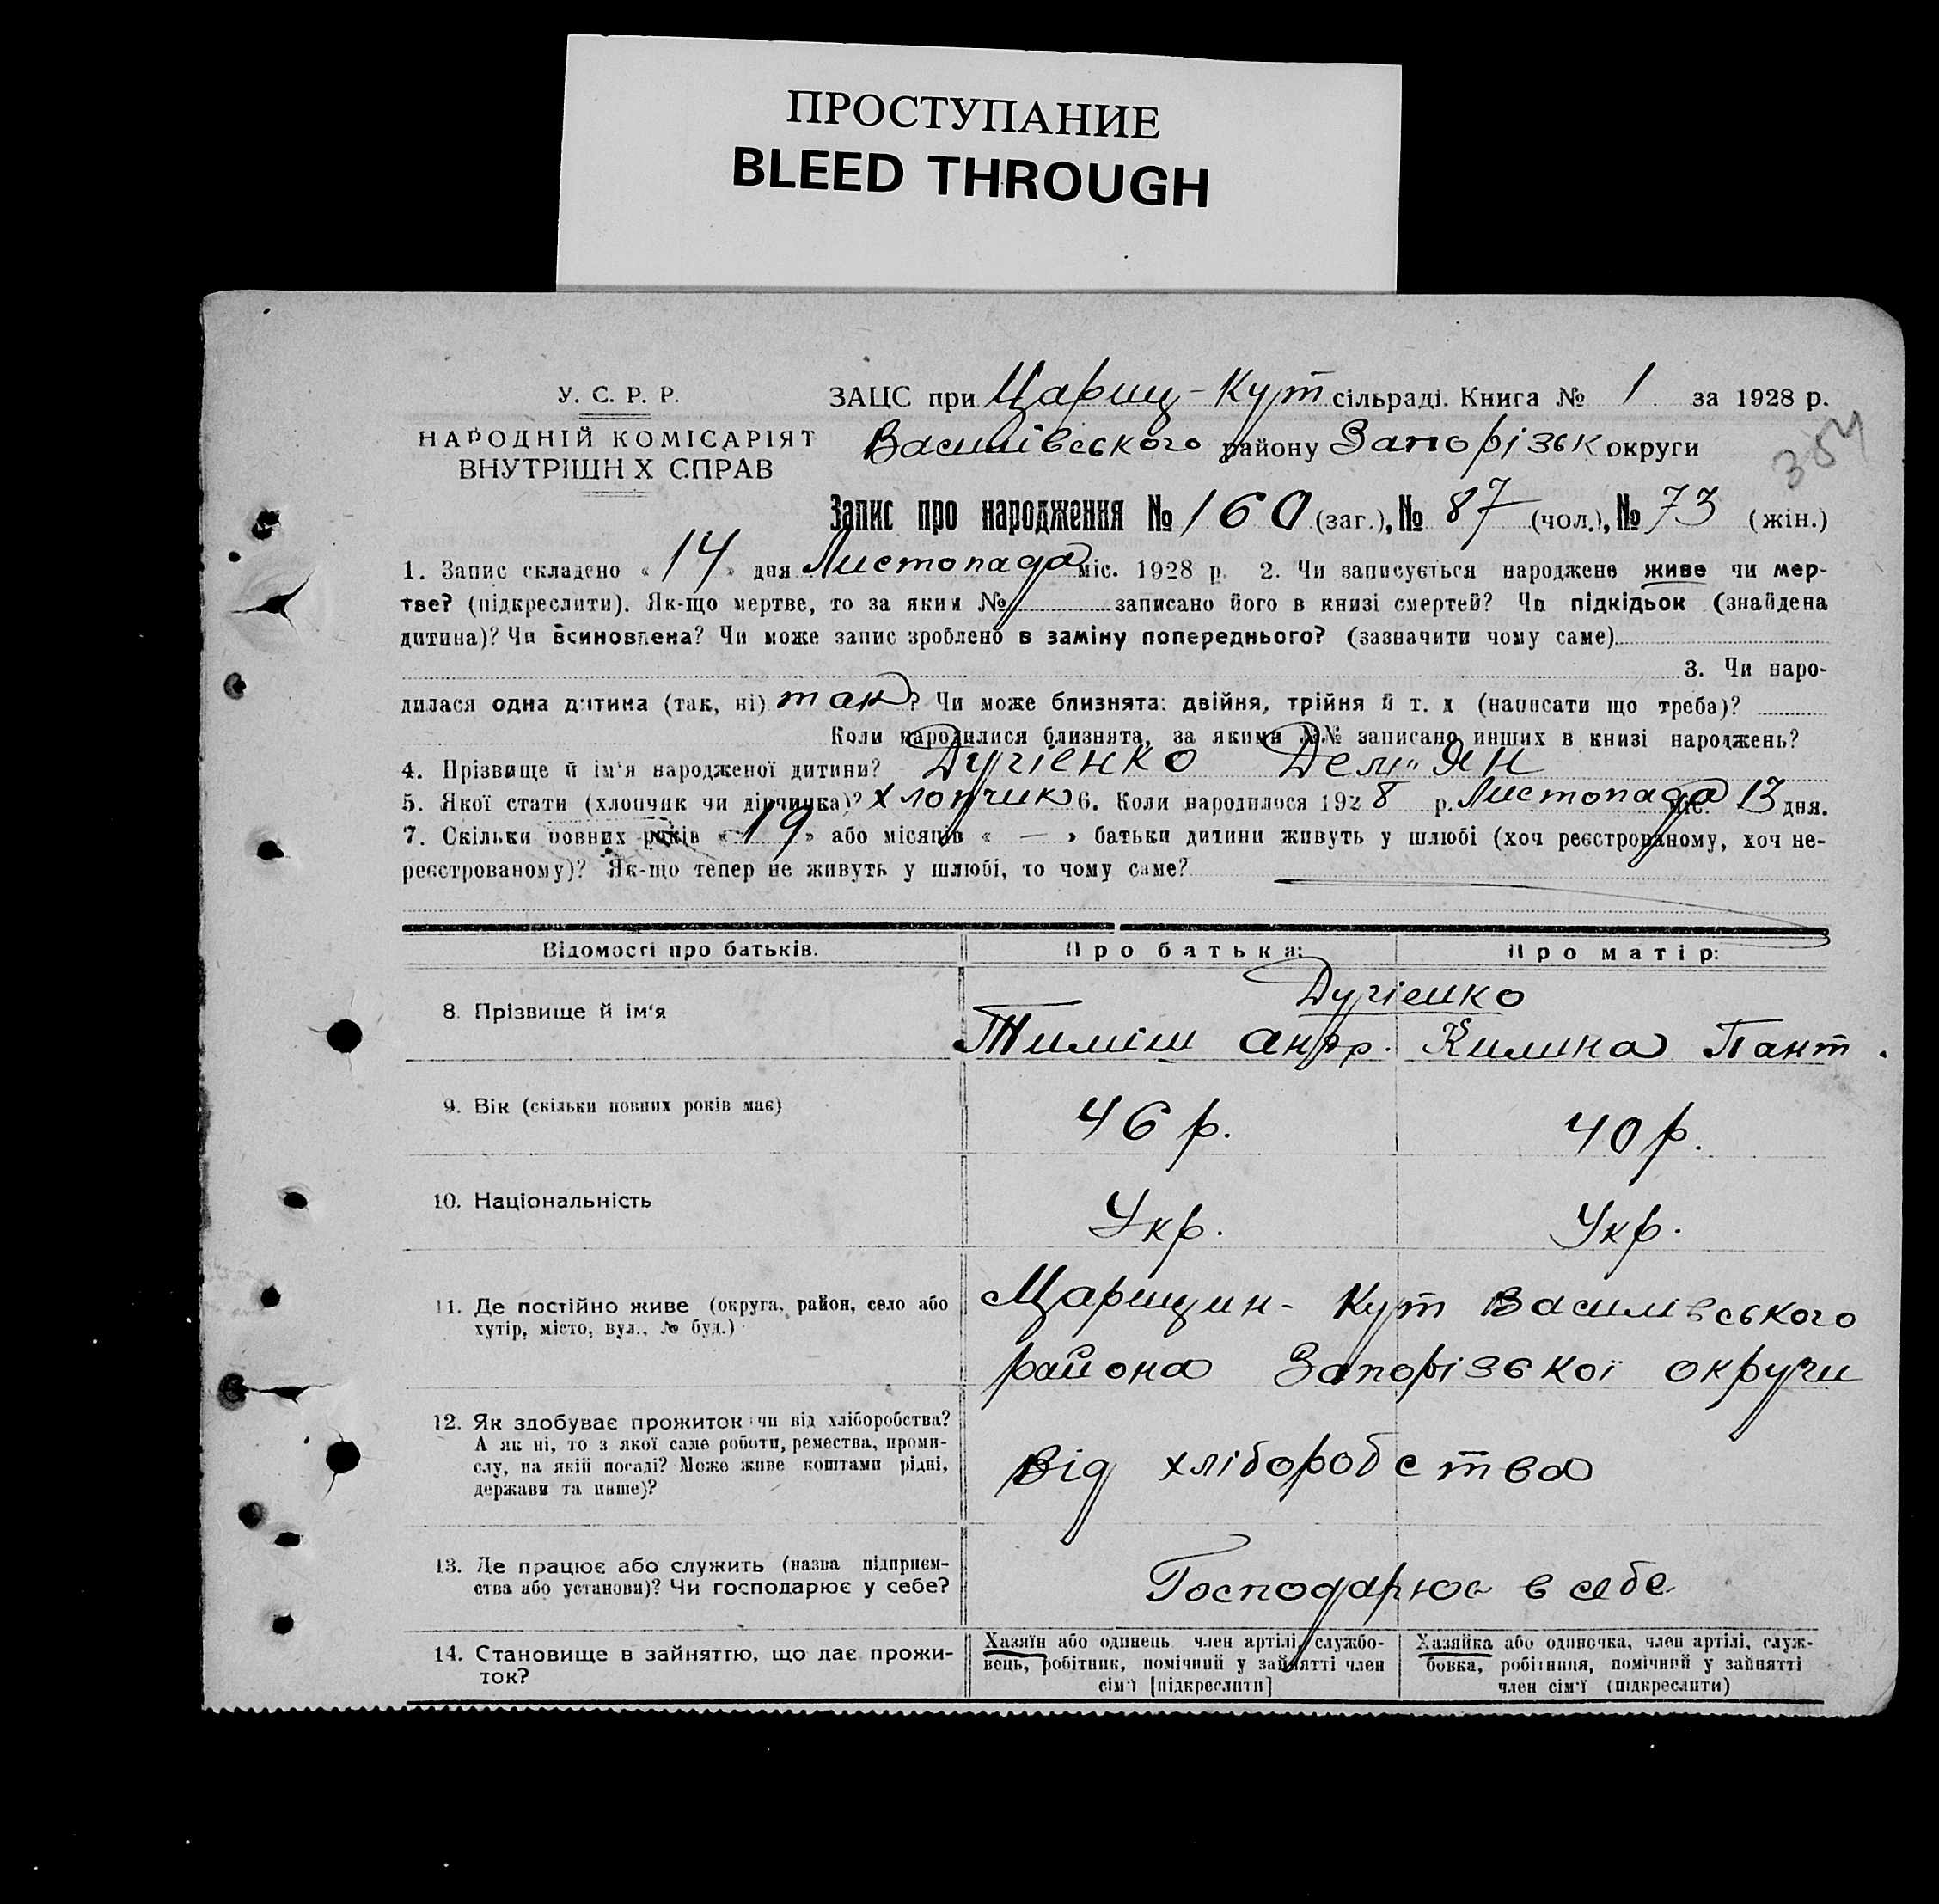 ПРОСТУПАНИЕ
BLEED THROUGH
У. С. Р. Р.
НАРОДНІЙ КОМІСАРІЯТ
ВНУТРІШН Х СПРАВ
ЗАЦС при Царищ-Кут сільраді. Книга № 1 за 1928 р.
Василівського району Запорізьк округи
354
Запис про народження № 160 (заг.), № 87 (чол.), № 73 (жін.)
1. Запис складено « 14 » дня Листопада міс. 1928 р. 2. Чи записується народжене живе чи мер-
тве? (підкреслити). Як-що мертве, то за яким № записано його в книзі смертей? Чи підкідьок (знайдена
дитина)? Чи всиновлена? Чи може запис зроблено в заміну попереднього? (зазначити чому саме)
3. Чи наро-
дилася одна дитина (так, ні) так? Чи може близнята: двійня, трійня й т. д (написати що треба)?
Коли народилися близнята, за якими №№ записано инших в книзі народжень?
4. Прізвище й ім'я народженої дитини? Дугієнко Дем"ян
5. Якої стати (хлопчик чи дівчинка)? хлопчик 6. Коли народилося 1928 р. Листопада міс. 13 дня.
7. Скільки повних років « 19 » або місяців « — » батьки дитини живуть у шлюбі (хоч реєстрованому, хоч не-
реєстрованому)? Як-що тепер не живуть у шлюбі, то чому саме?
Відомості про батьків. Про батька: Про матір:
Дугієнко
8. Прізвище й ім'я Тиміш Андр. Килина Пант.
9. Вік (скільки повних років має) 46 р. 40 р.
10. Національність Укр. Укр.
11. Де постійно живе (округа, район, село або
хутір, місто, вул., № буд.)
Царицин-Кут Василівського
района Запорізької округи
12. Як здобуває прожиток: чи від хліборобства?
А як ні, то з якої саме роботи, ремества, проми-
слу, на якій посаді? Може живе коштами рідні,
держави та инше)?
від хліборобства
13. Де працює або служить (назва підприєм-
ства або установи)? Чи господарює у себе?
Господарює в себе
14. Становище в зайняттю, що дає прожи-
ток?
Хазяїн або одинець член артілі, службо-
вець, робітник, помічний у зайнятті член
сім'ї [підкреслити]
Хазяйка або одиночка, член артілі, служ-
бовка, робітниця, помічний у зайнятті
член сім'ї (підкреслити)